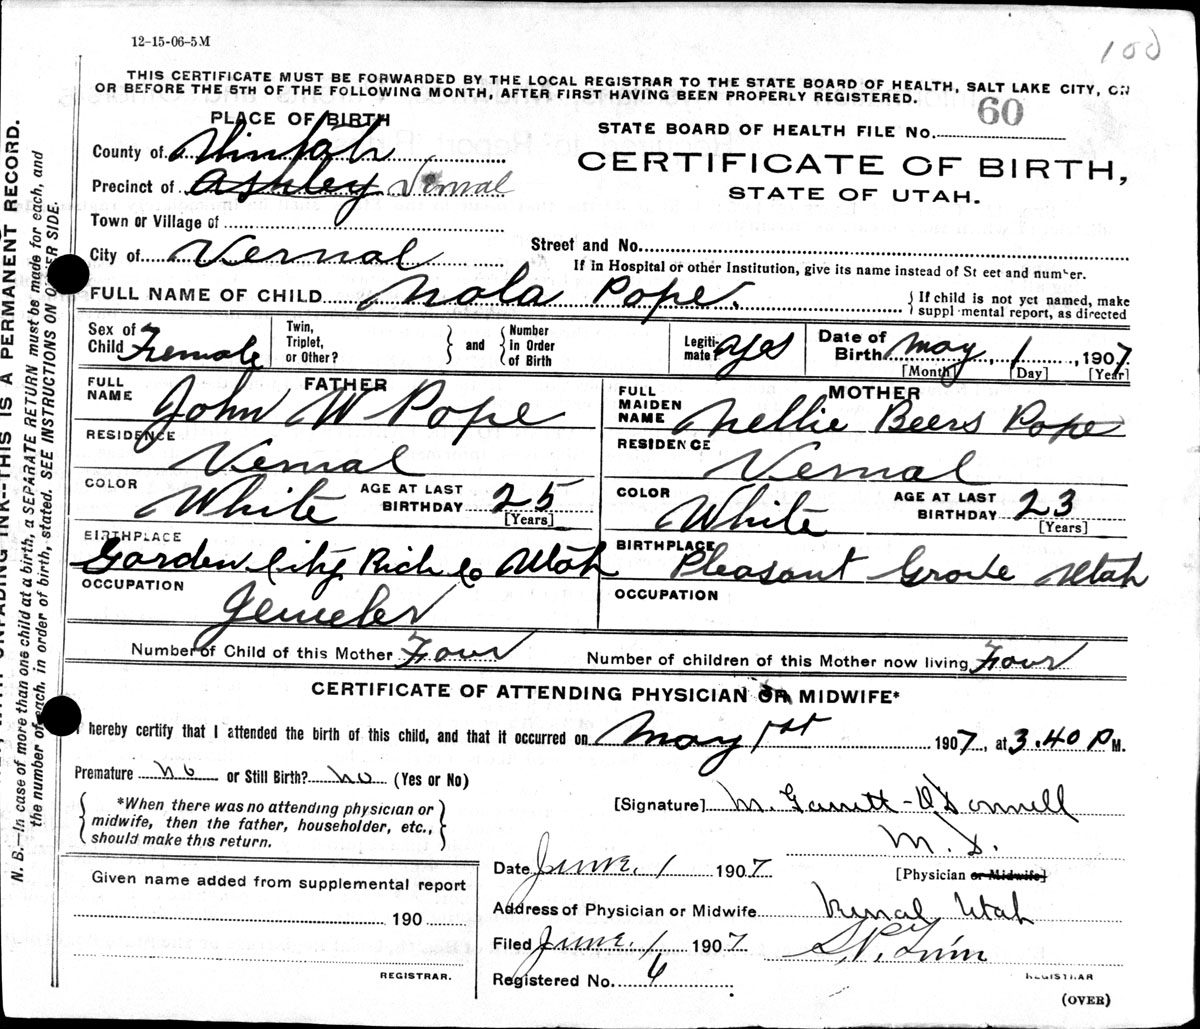 12-15-06-5M
100
THIS CERTIFICATE MUST BE FORWARDED BY THE LOCAL REGISTRAR TO THE STATE BOARD OF HEALTH, SALT LAKE CITY, ON
OR BEFORE THE 5TH OF THE FOLLOWING MONTH, AFTER FIRST HAVING BEEN PROPERLY REGISTERED.
PLACE OF BIRTH
STATE BOARD OF HEALTH FILE NO. 60
County of Uintah
CERTIFICATE OF BIRTH,
Precinct of Ashley Vernal
STATE OF UTAH.
Town or Village of
Street and No.
City of Vernal
If in Hospital or other Institution, give its name instead of St eet and number.
FULL NAME OF CHILD Nola Pope.
If child is not yet named, make
suppl mental report, as directed
Sex of Child Female
Twin, Triplet, or Other?
and
Number in Order of Birth
Legiti-mate? yes
Date of Birth May 1, 1907
[Month] [Day] [Year]
FATHER
FULL NAME John W Pope
MOTHER
FULL MAIDEN NAME Nellie Beers Pope
RESIDENCE Vernal
RESIDENCE Vernal
COLOR White AGE AT LAST BIRTHDAY 25 [Years]
COLOR White AGE AT LAST BIRTHDAY 23 [Years]
BIRTHPLACE Garden City Rich Co Utah
BIRTHPLACE Pleasant Grove Utah
OCCUPATION Jeweler
OCCUPATION
Number of Child of this Mother Four
Number of children of this Mother now living Four
CERTIFICATE OF ATTENDING PHYSICIAN OR MIDWIFE*
I hereby certify that I attended the birth of this child, and that it occurred on May 1st 1907, at 3.40 P M.
Premature no or Still Birth? no (Yes or No)
*When there was no attending physician or
midwife, then the father, householder, etc.,
should make this return.
[Signature] M. Garrett-O'Donnell
M. D.
[Physician or Midwife]
Date June 1 1907
Given name added from supplemental report
190
REGISTRAR.
Address of Physician or Midwife Vernal, Utah
Filed June 1 1907
Registered No. 6
REGISTRAR
(OVER)
N. B.—In case of more than one child at a birth, a SEPARATE RETURN must be made for each, and
the number of each, in order of birth, stated. SEE INSTRUCTIONS ON OTHER SIDE.
UNFADING INK--THIS IS A PERMANENT RECORD.